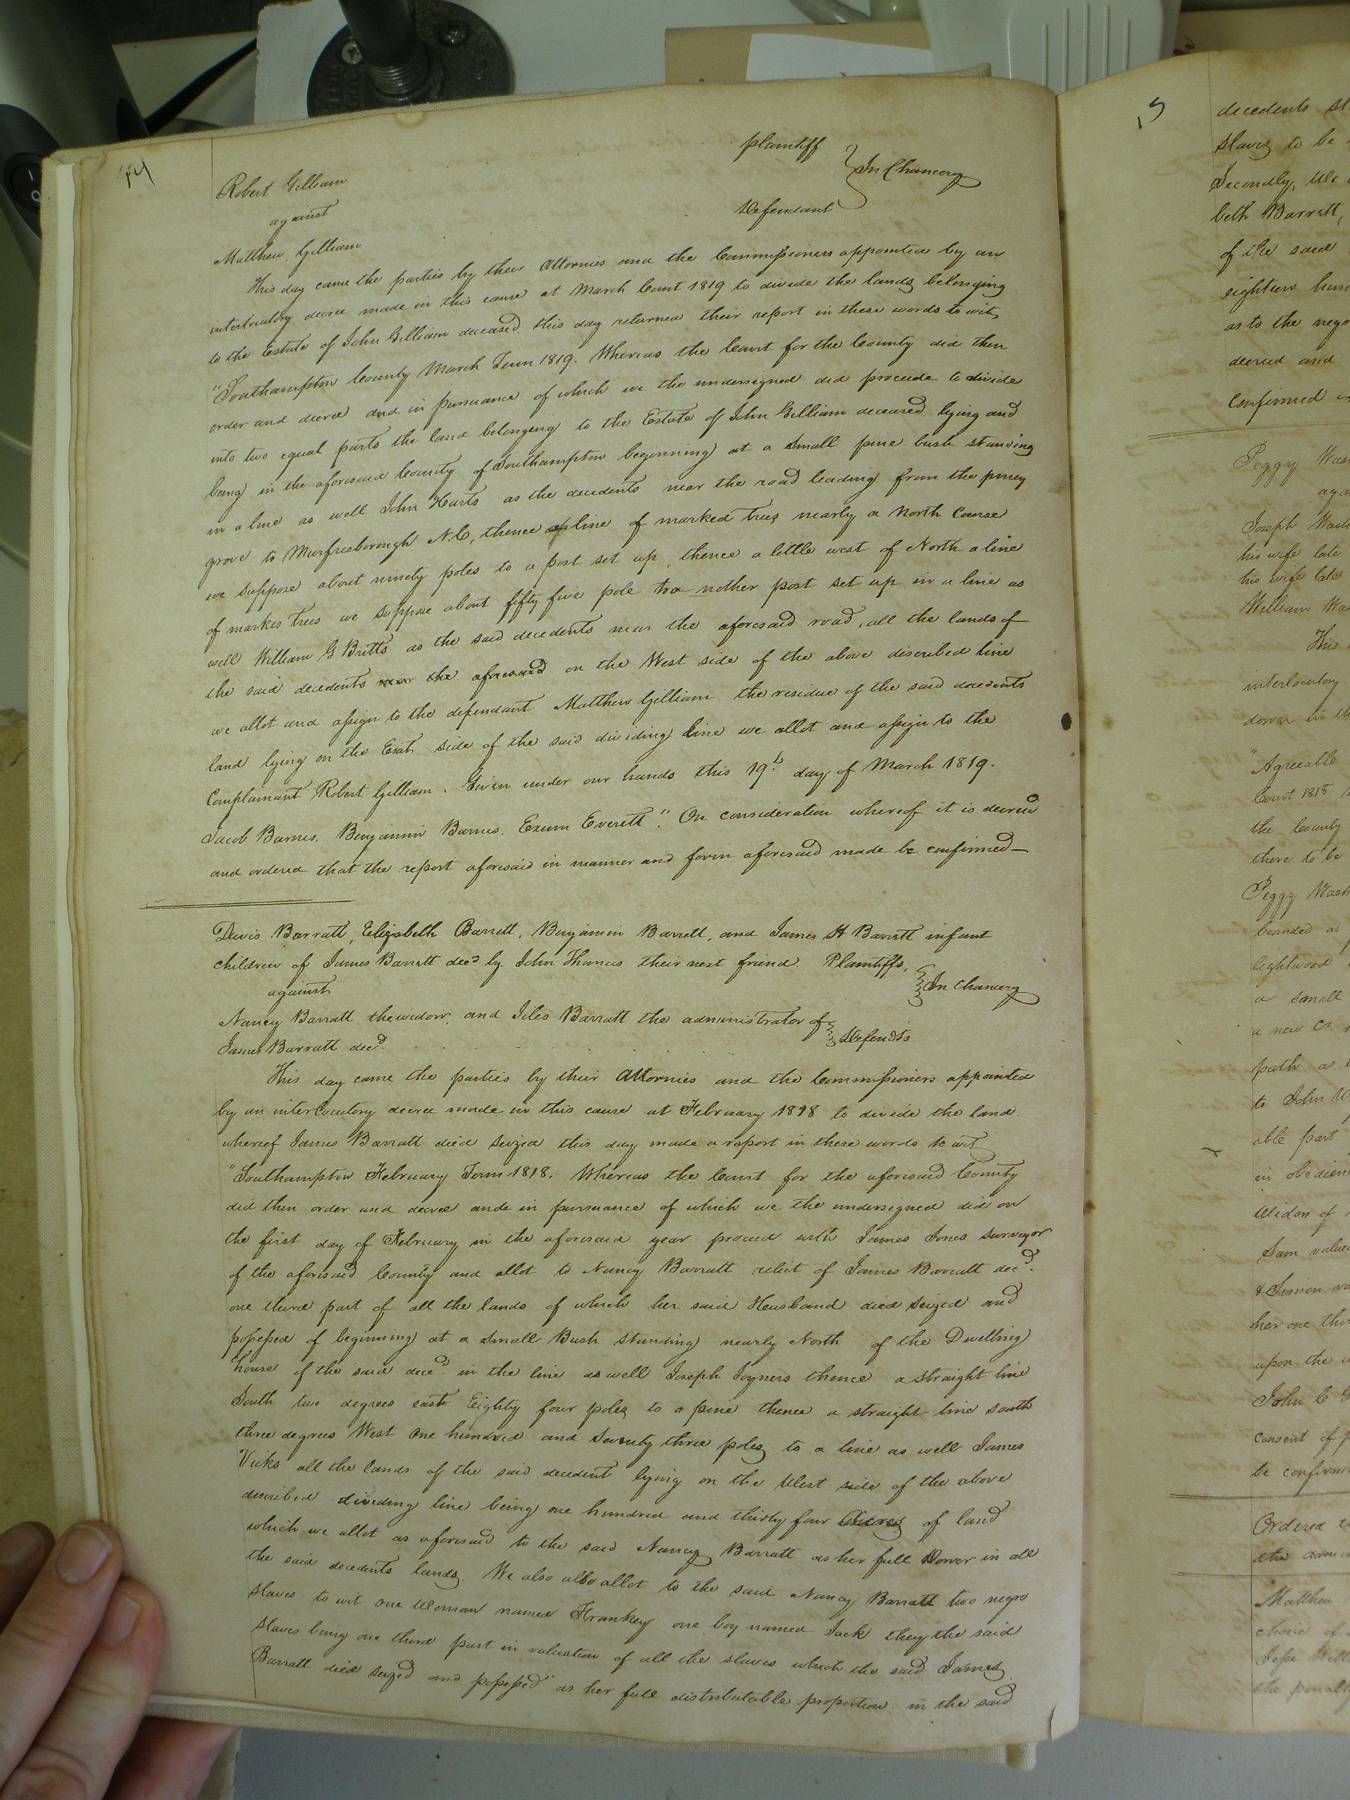 74
plaintiff
Robert Gilliam
against
In Chancery
Defendant
Matthew Gilliam
This day came the parties by their Attornies and the Commissioners appointed by an
interlocutory decree made in this cause at March Court 1819 to divide the lands belonging
to the Estate of John Gilliam deceased this day returned their report in these words to wit,
"Southampton County March Term 1819. Whereas the Court for the County did then
order and decree and in pursuance of which we the undersigned did procede to divide
into two equal parts the land belonging to the Estate of John Gilliam deceased lying and
being in the aforesaid County of Southampton beginning at a Small pine bush standing
in a line as well John Harts as the decedents near the road leading from the piney
grove to Murfreesborough N.C, thence a line of marked trees nearly a North Course
we suppose about ninety poles to a post set up, thence a little west of North a line
of markes trees we suppose about fifty five pole to a nother post set up in a line as
well William G Britts as the said decedents near the aforesaid road, all the lands of
the said decedents near the aforesaid on the West side of the above discribed line
we allot and assign to the defendant Matthew Gilliam the residue of the said decedents
land lying on the East side of the said dividing line we allot and assign to the
Complainant Robert Gilliam. Given under our hands this 19th day of March 1819.
Jacob Barnes, Benjamin Barnes, Exum Everett". On consideration whereof it is decreed
and ordered that the report aforesaid in manner and form aforesaid made be confirmed
Davis Barratt, Elizabeth Barrett, Benjamin Barrett, and James H Barrett infant
children of James Barrett decd by John Thomas their next friend Plaintiffs,
against
In Chancery
Nancy Barratt the widow, and Giles Barratt the administrator of
James Barratt decd.
Defendts
This day came the parties by their Attornies and the Commissioners appointed
by an interlocutory decree made in this cause at February 1818 to divide the land
whereof James Barratt died seized this day made a report in these words to wit
"Southampton February Term 1818. Whereas the Court for the aforesaid County
did then order and decree and in pursuance of which we the undersigned did on
the first day of February in the aforesaid year proceed with James Jones surveyor
of the aforesaid County and allot to Nancy Barratt relict of James Barratt decd.
one third part of all the lands of which her said Heusband died seized and
possessed of beginning at a Small Bush standing nearly North of the Dwelling
house of the said decd in the line as well Joseph Joyners thence a straight line
South two degrees east Eighty four poles to a pine thence a straight line south
three degrees West one hundred and Seventy three poles to a line as well James
Vicks all the lands of the said decedent lying on the West side of the above
described dividing line being one hundred and thirty four Acres of land
which we allot as aforesaid to the said Nancy Barratt as her full Dower in all
the said decedents lands. We also allot to the said Nancy Barratt two negro
slaves to wit one Woman named Frankey one boy named Jack they the said
Slaves being one third part in valuation of all the slaves which the said James
Barratt died seized and possessed" as her full distributable proportion in the said
decedents
slaves to be
Secondly, We
beth Barratt,
of the said
eighteen hun
as to the negro
decreed and
confirmed
Peggy Wash
Joseph Wash
his wife late
his wife late
William Wa
This
interlocutory
dower in th
"Agreeable
Court 1818
the County
there to be
Peggy Wash
bounded
lightwood
a small
a new
path as
to John W
able part
in obedien
Widow of
Sam value
& Simon
her one thi
upon the
John C
consent of p
be confirmed
Ordered
Matthew
choice of
the penalt